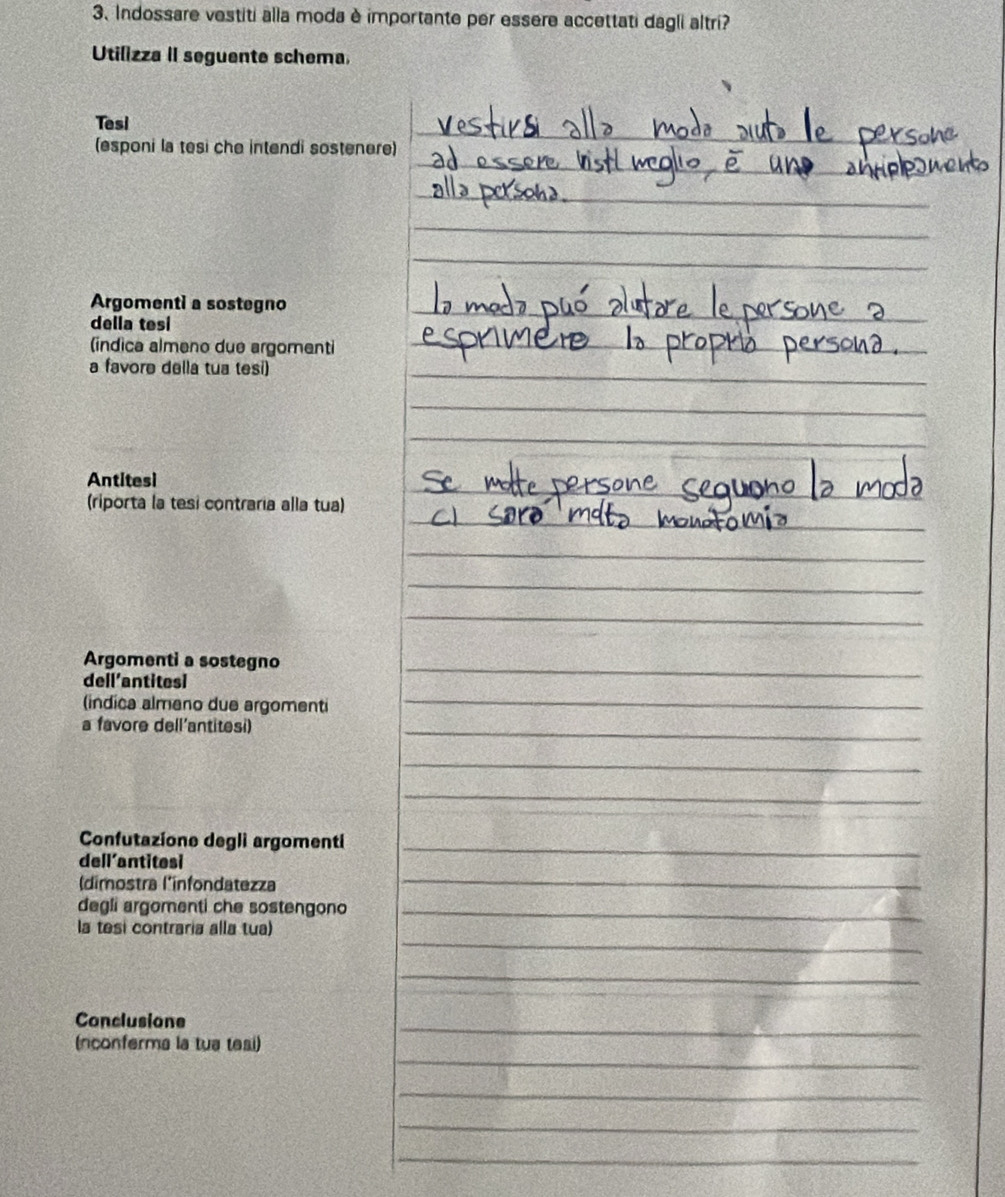 3. Indossare vestiti alla moda è importante per essere accettati dagli altri?
Utilizza il seguente schema.
Tesi
(esponi la tesi che intendi sostenere)
vestirsi alla moda aiuta le persone
ad essere visti meglio, è una
alla persona.
Argomenti a sostegno
della tesi
(indica almeno due argomenti
a favore della tua tesi)
la moda puó aiutare le persone a
esprimere la propria persona.
Antitesi
(riporta la tesi contraria alla tua)
se molte persone seguono la moda
ci sará molta monotomia
Argomenti a sostegno
dell'antitesi
(indica almeno due argomenti
a favore dell'antitesi)
Confutazione degli argomenti
dell'antitesi
(dimostra l'infondatezza
degli argomenti che sostengono
la tesi contraria alla tua)
Conclusione
(riconferma la tua tesi)